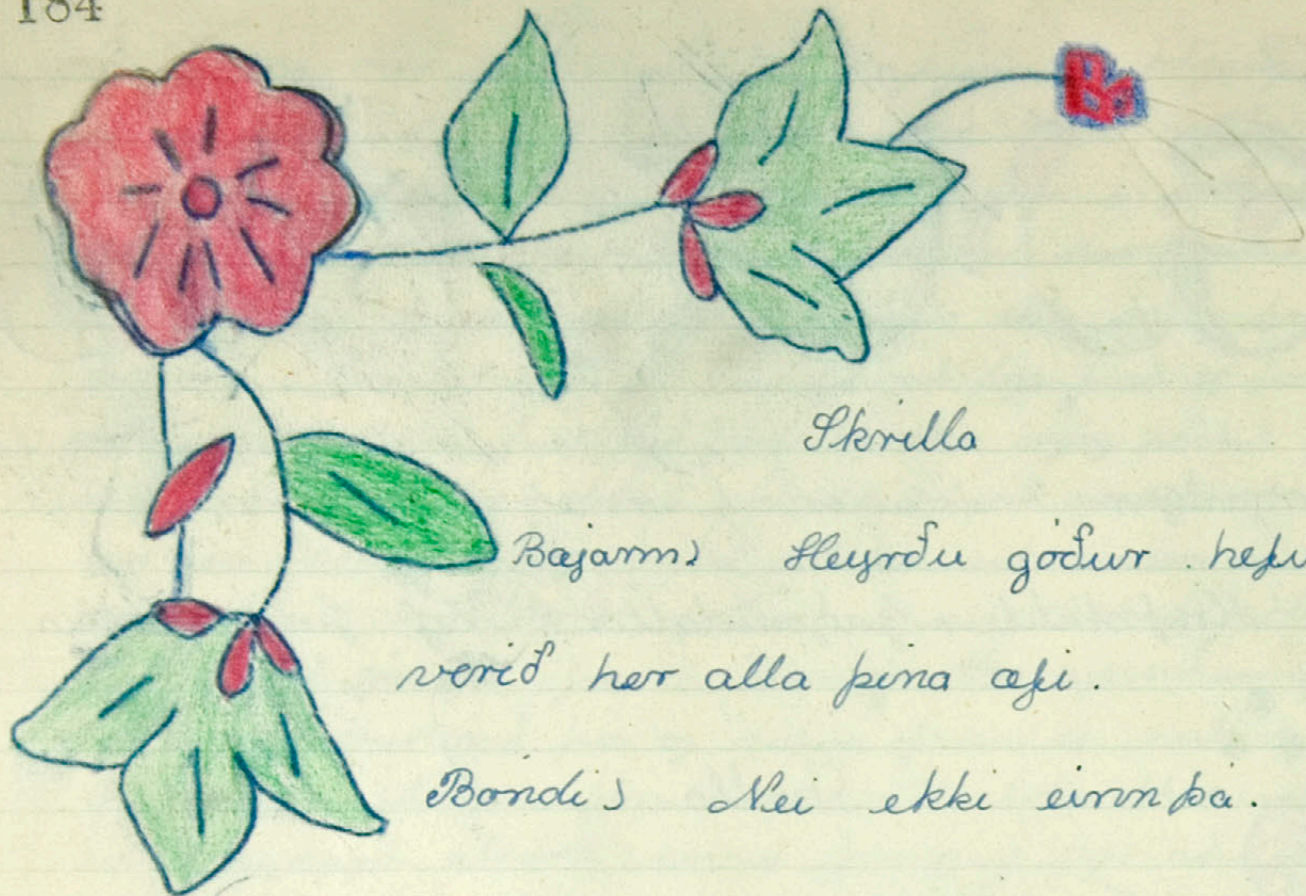 184
Skrilla
Bæjarm) Heyrðu góður hefu
verið hér alla þína æfi.
Bóndi) Nei ekki einn þá.